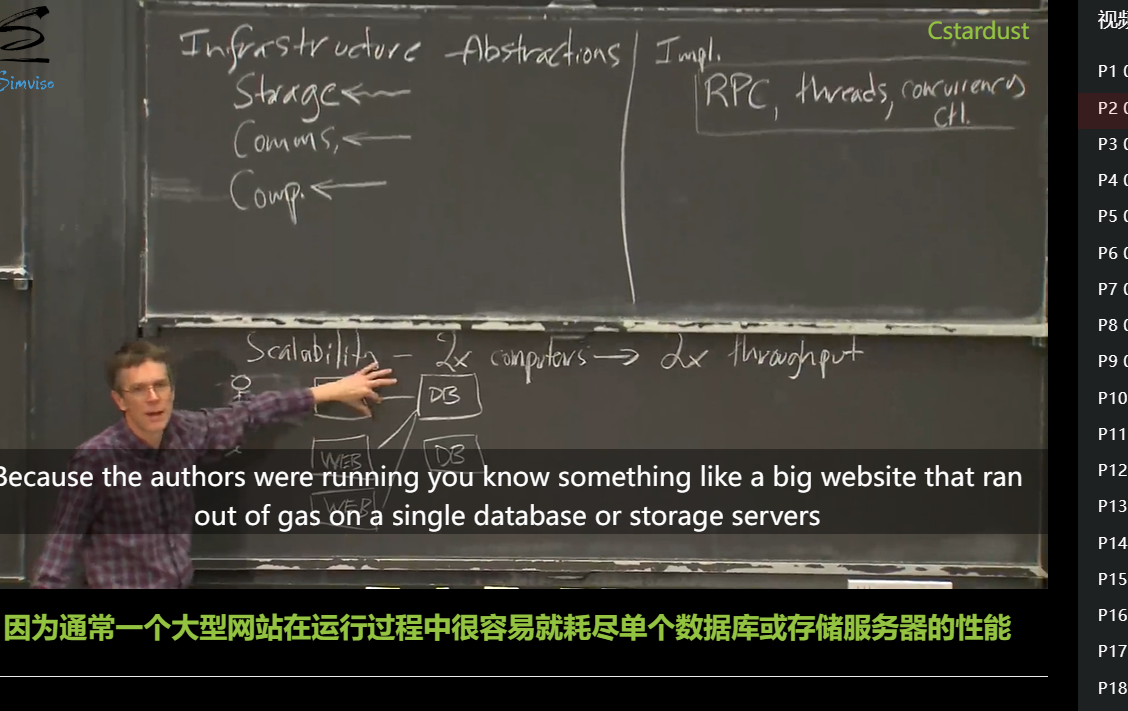 Simviso
Cstardust
Infrastructure - Abstractions
Impl.
Storage
RPC, threads, concurrency
ctl.
Comms.
Comp.
Scalability - 2x computers → 2x throughput
DB
WEB
DB
WEB
Because the authors were running you know something like a big website that ran
out of gas on a single database or storage servers
因为通常一个大型网站在运行过程中很容易就耗尽单个数据库或存储服务器的性能
P1 0
P2 0
P3 0
P4 0
P5 0
P6 0
P7 0
P8 0
P9 0
P10
P11
P12
P13
P14
P15
P16
P17
P18